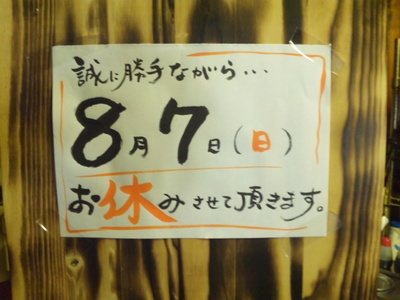 誠に勝手ながら...
8月7日(日)
お休みさせて頂きます。